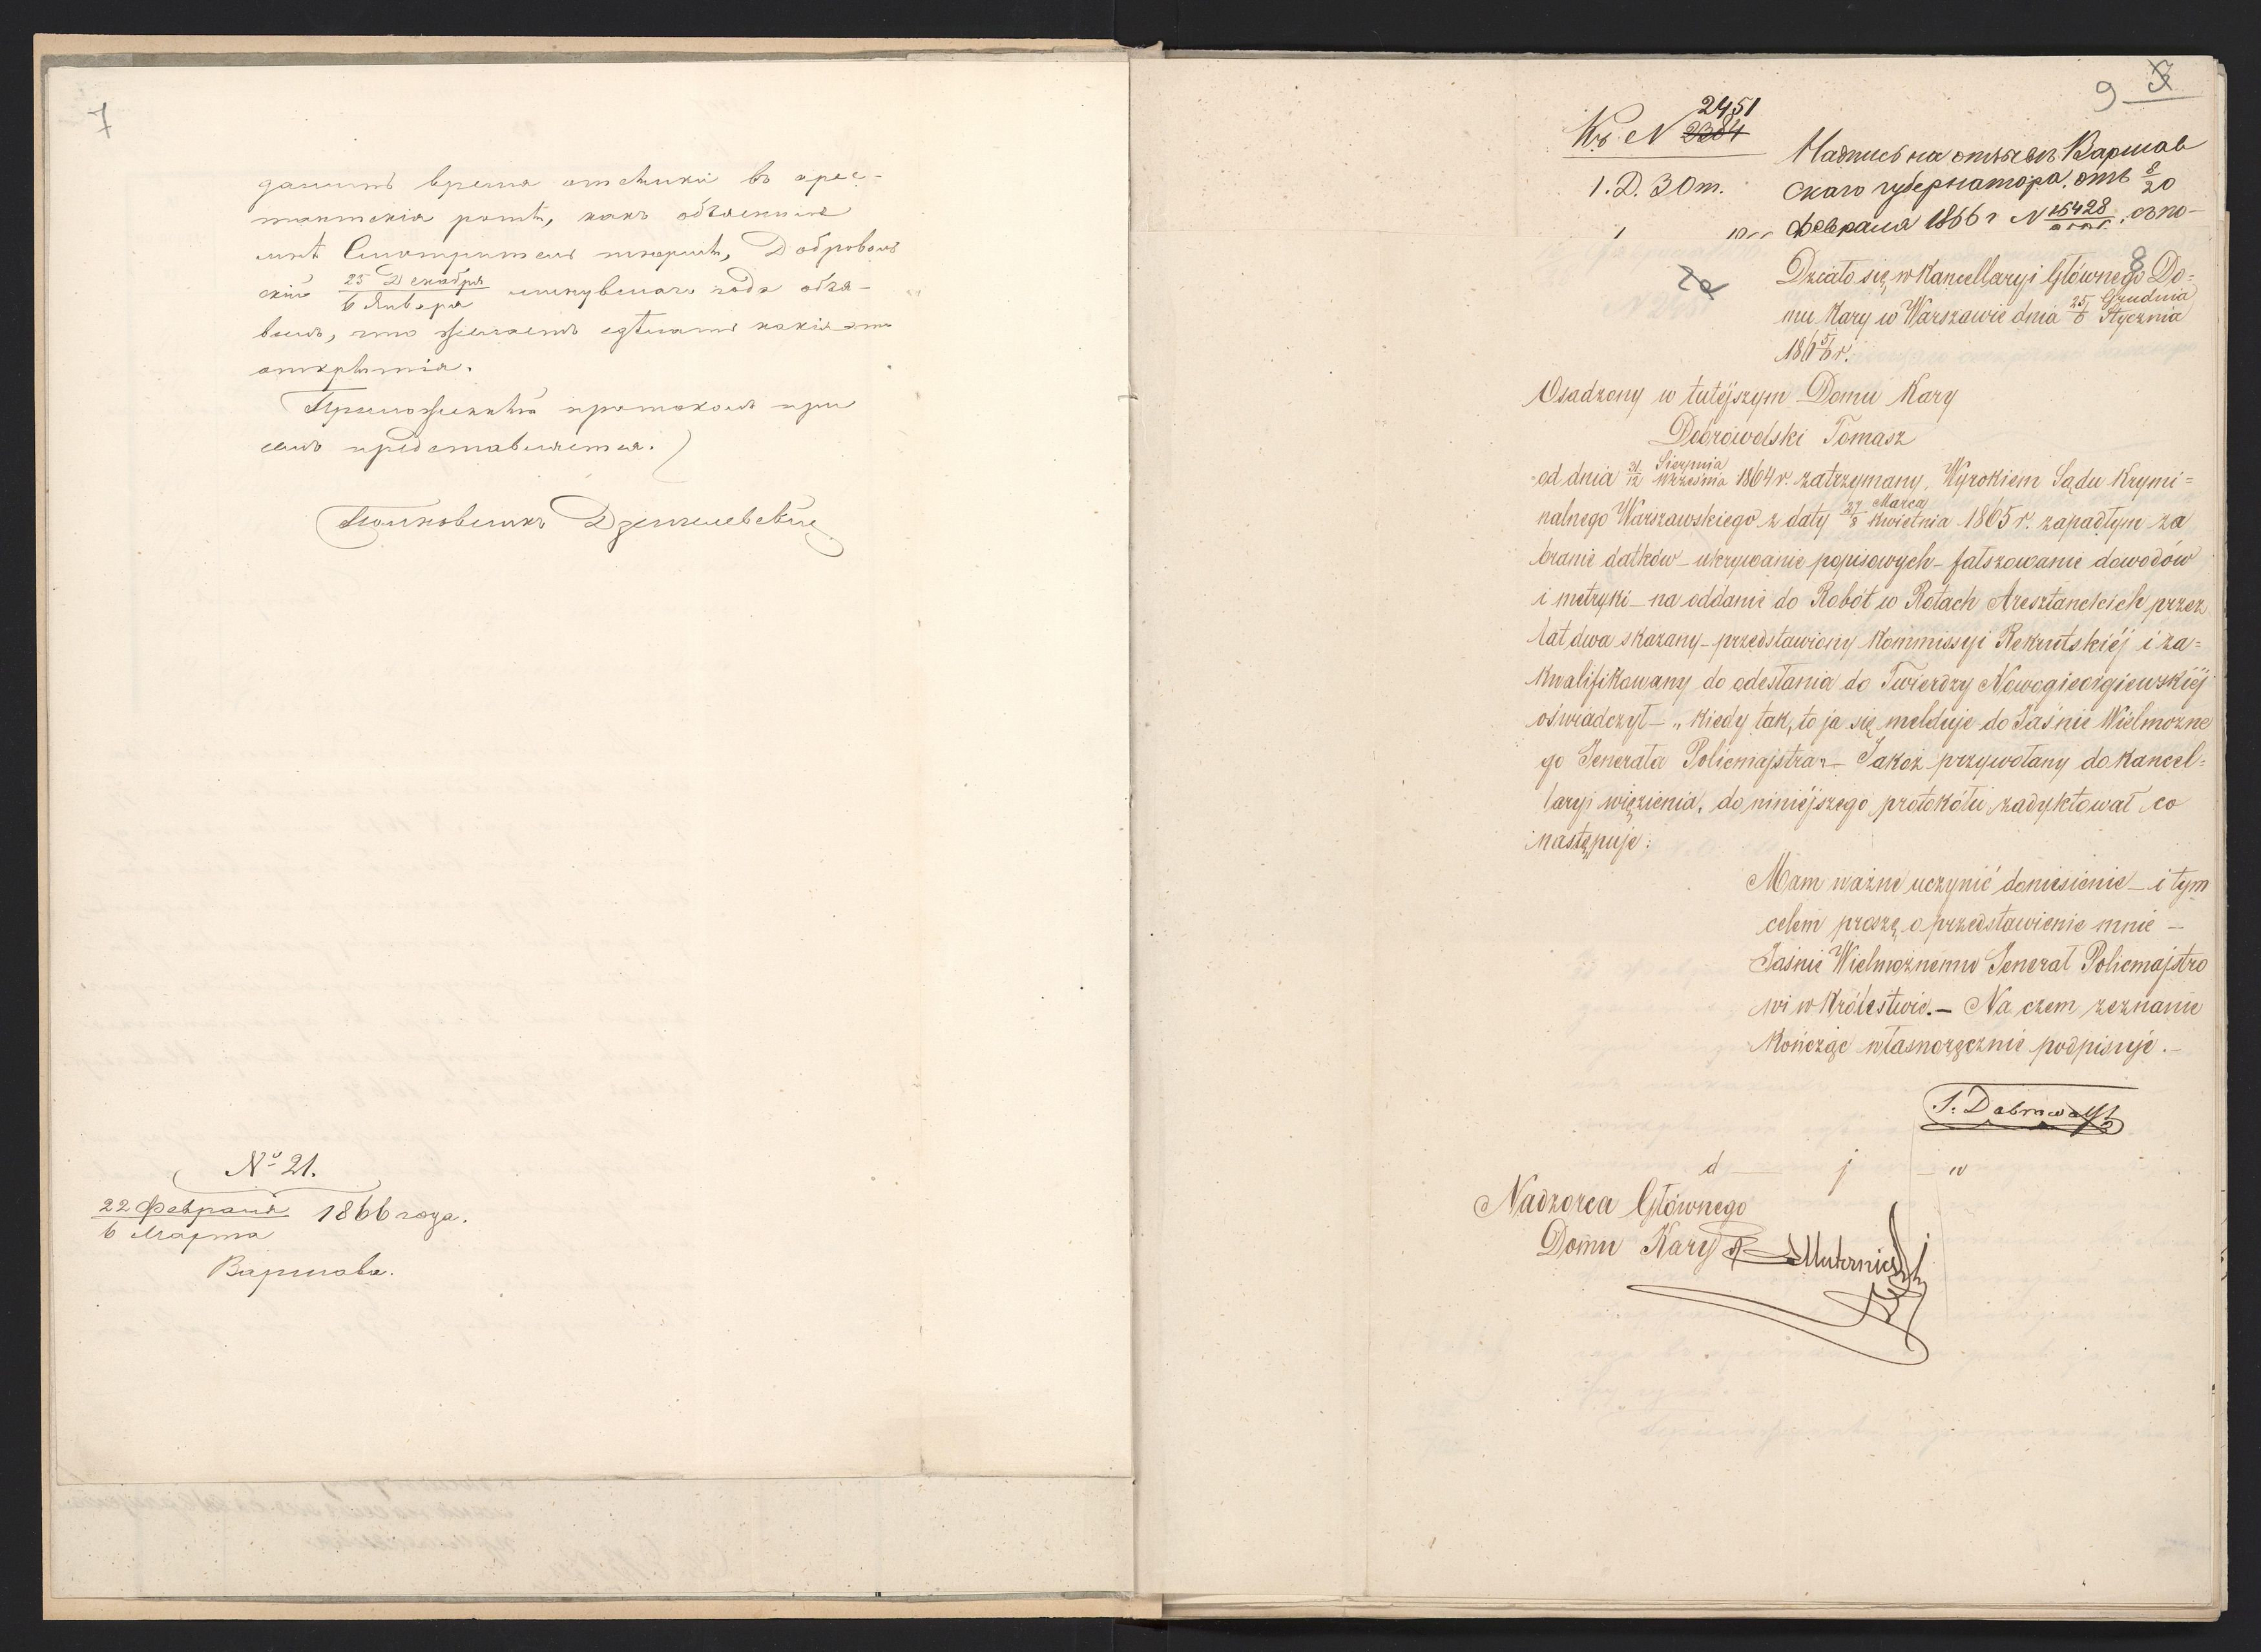 7
данимъ время отсылки въ арес-
тантскія роты, какъ объяснилъ
мнѣ Смотритель тюрьмы, Добровол
скій 25 Декабря / 6 Января минувшаго года объя-
вилъ, что желаетъ сдѣлать какія то
открытія.
Приложенный протоколъ при
семъ представляется.
Полковникъ
№ 21.
22 Февраля / 6 Марта 1866 года.
Варшава.
9 3
2451
Къ N 2384
1. Д. 3 От.
Надпись на отзывъ Варшав
скаго губернатора, отъ 8/20
Февраля 1866 г N 16428, съ по-
8
Działo się w Kancellaryi Głównego Do=
mu Kary w Warszawie dnia 25/6 Grudnia/Stycznia
1865/6 r.
Osadzony w tutéjszym Domu Kary
Dobrowolski Tomasz
od dnia 31/12 Sierpnia/Września 1864 r. zatrzymany, Wyrokiem Sądu Krymi=
nalnego Warszawskiego z daty 27/8 Marca/Kwietnia 1865 r. zapadłym za
branie datków – ukrywanie popisowych – fałszowanie dowodów
i metryki – na oddanie do Robót w Rotach Aresztanckich przez
lat dwa skazany – przedstawiony Kommissyi Rekrutskiéj i za=
kwalifikowany do odesłania do Twierdzy Nowogieorgiewskiéj
oświadczył – „Kiedy tak, to ja się melduje do Jaśnie Wielmożne
go Jenerała Policmajstra" – Jakoż przywołany do Kancel=
laryi więzienia, do niniéjszego protokółu zadyktował co
następuje:
Mam ważne uczynić doniesienie – i tym
celem proszę o przedstawienie mnie –
Jaśnie Wielmożnemu Jenerał Policmajstro
wi w Królestwie. – Na czem zeznanie
Kończąc własnoręcznie podpisuje. –
T. Dobrowolski
d j w
Nadzorca Głównego
Domu Kary